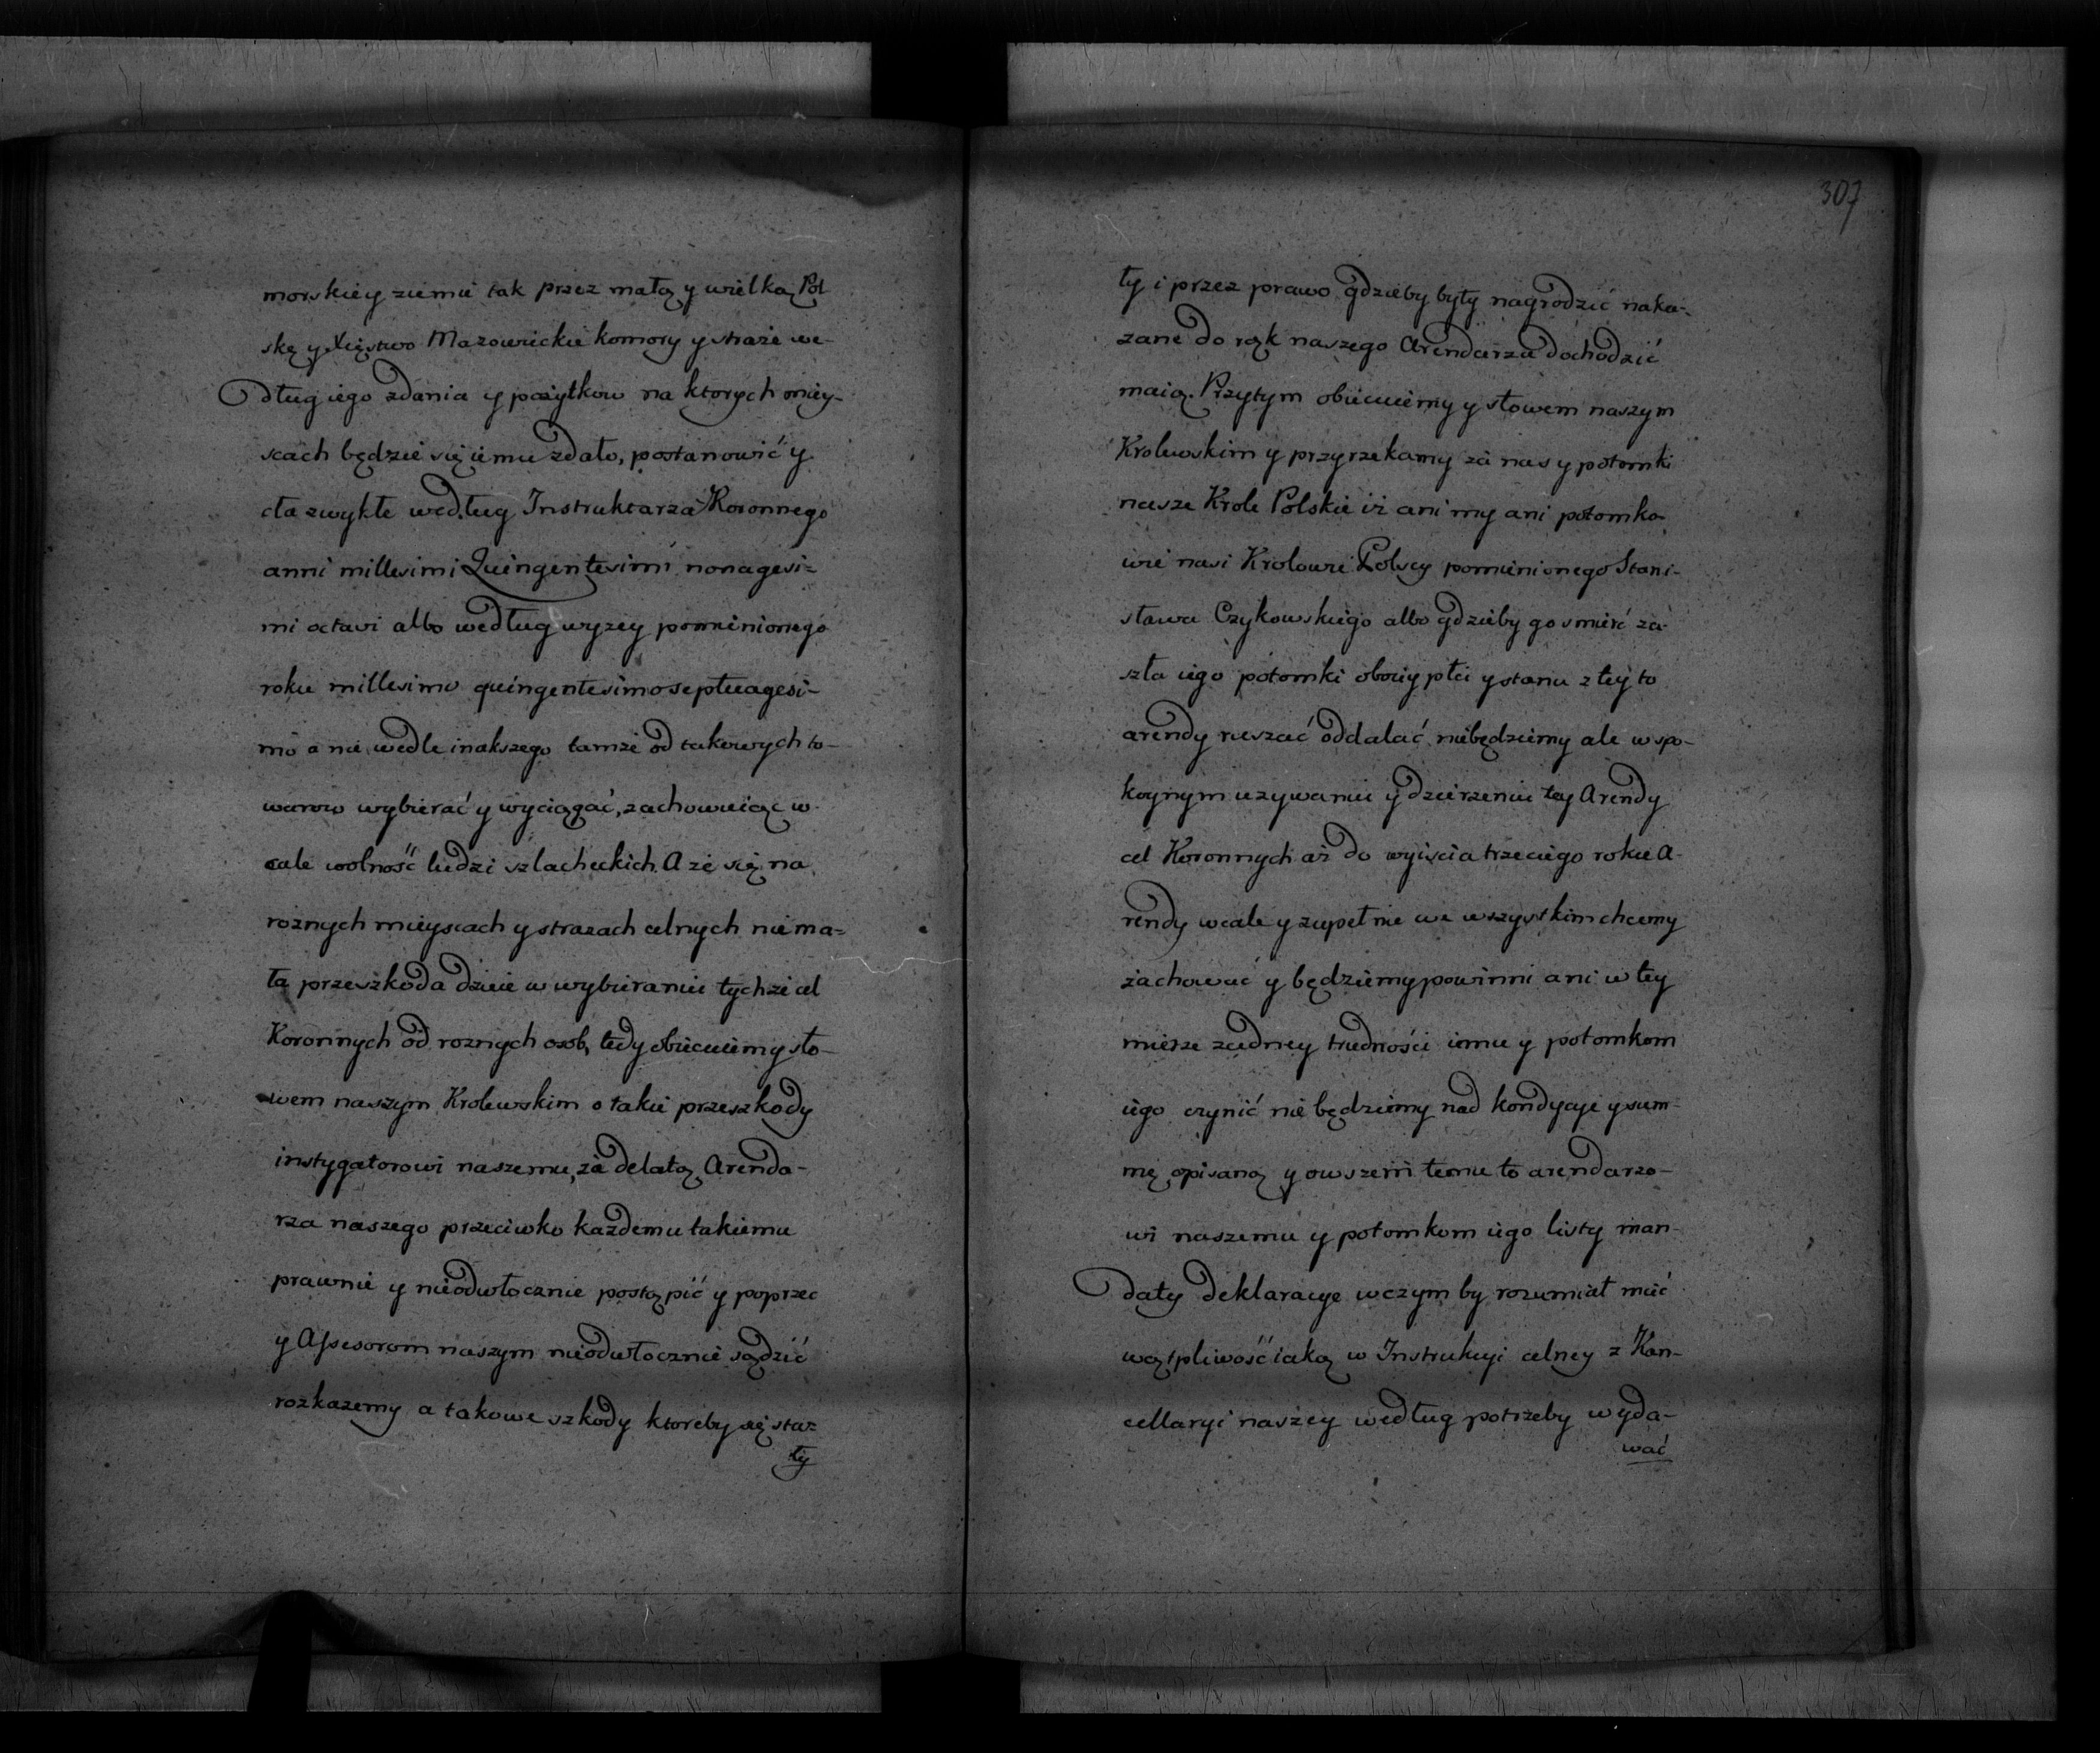 morskiey ziemie tak przez małą y wielką Pol
skę y Xięstwo Mazowieckie komory y straże we-
dług iego zdania y pożytkow na ktorych miey-
scach będzie się iemu zdało, postanowić y
cła zwykłe według Instruktarza Koronnego
anni millesimi Quingentesimi nonagesi=
mi octavi albo według wyzey pomienionego
roku millesimo quingentesimo septuagesi-
mo a nie wedle inakszego tamże od takowych to-
warow wybierać y wyciągać, zachowuiąc w
cale wolność ludzi szlacheckich. A że się na
roznych mieyscach y strazach celnych nie ma=
ła przeszkoda dzieie w wybieraniu tychże cel
Koronnych od roznych osob, tedy obiecuiemy sło-
wem naszym Krolewskim o takie przeszkody
instygatorowi naszemu, za delatą Arenda-
rza naszego przeciwko kazdemu takiemu
prawnie y nieodwłocznie postąpić y poprzec
y Assesorom naszym nieodwłocznie sądzić
rozkazemy a takowe szkody ktoreby się sta=
ły
307
ły i przez prawo gdzieby były nagrodzić naka-
zane do rąk naszego Arendarza dochodzić
maią. Przytym obiecuiemy y słowem naszym
Krolewskim y przyrzekamy za nas y potomki
nasze Krole Polskie iż ani my ani potomko
wie nasi Krolowie Polscy pomienionego Stani-
sława Czykowskiego albo gdzieby go smierć za-
szła iego potomki oboiey płci y stanu z tey to
arendy ruszać oddalać niebędziemy ale w spo-
koynym uzywaniu y dzierzeniu tey Arendy
cel Koronnych aż do wyiścia trzeciego roku A-
rendy wcale y zupełnie we wszystkim chcemy
zachować y będziemy powinni ani w tey
mierze żadney trudności iemu y potomkom
iego czynić nie będziemy nad kondycye y sum-
mę opisaną y owszem temu to arendarzo-
wi naszemu y potomkom iego listy man-
daty deklaracye w czym by rozumiał mieć
wątpliwość iaką w Instrukcyi celney z Kan-
cellaryi naszey według potrzeby wyda-
wać